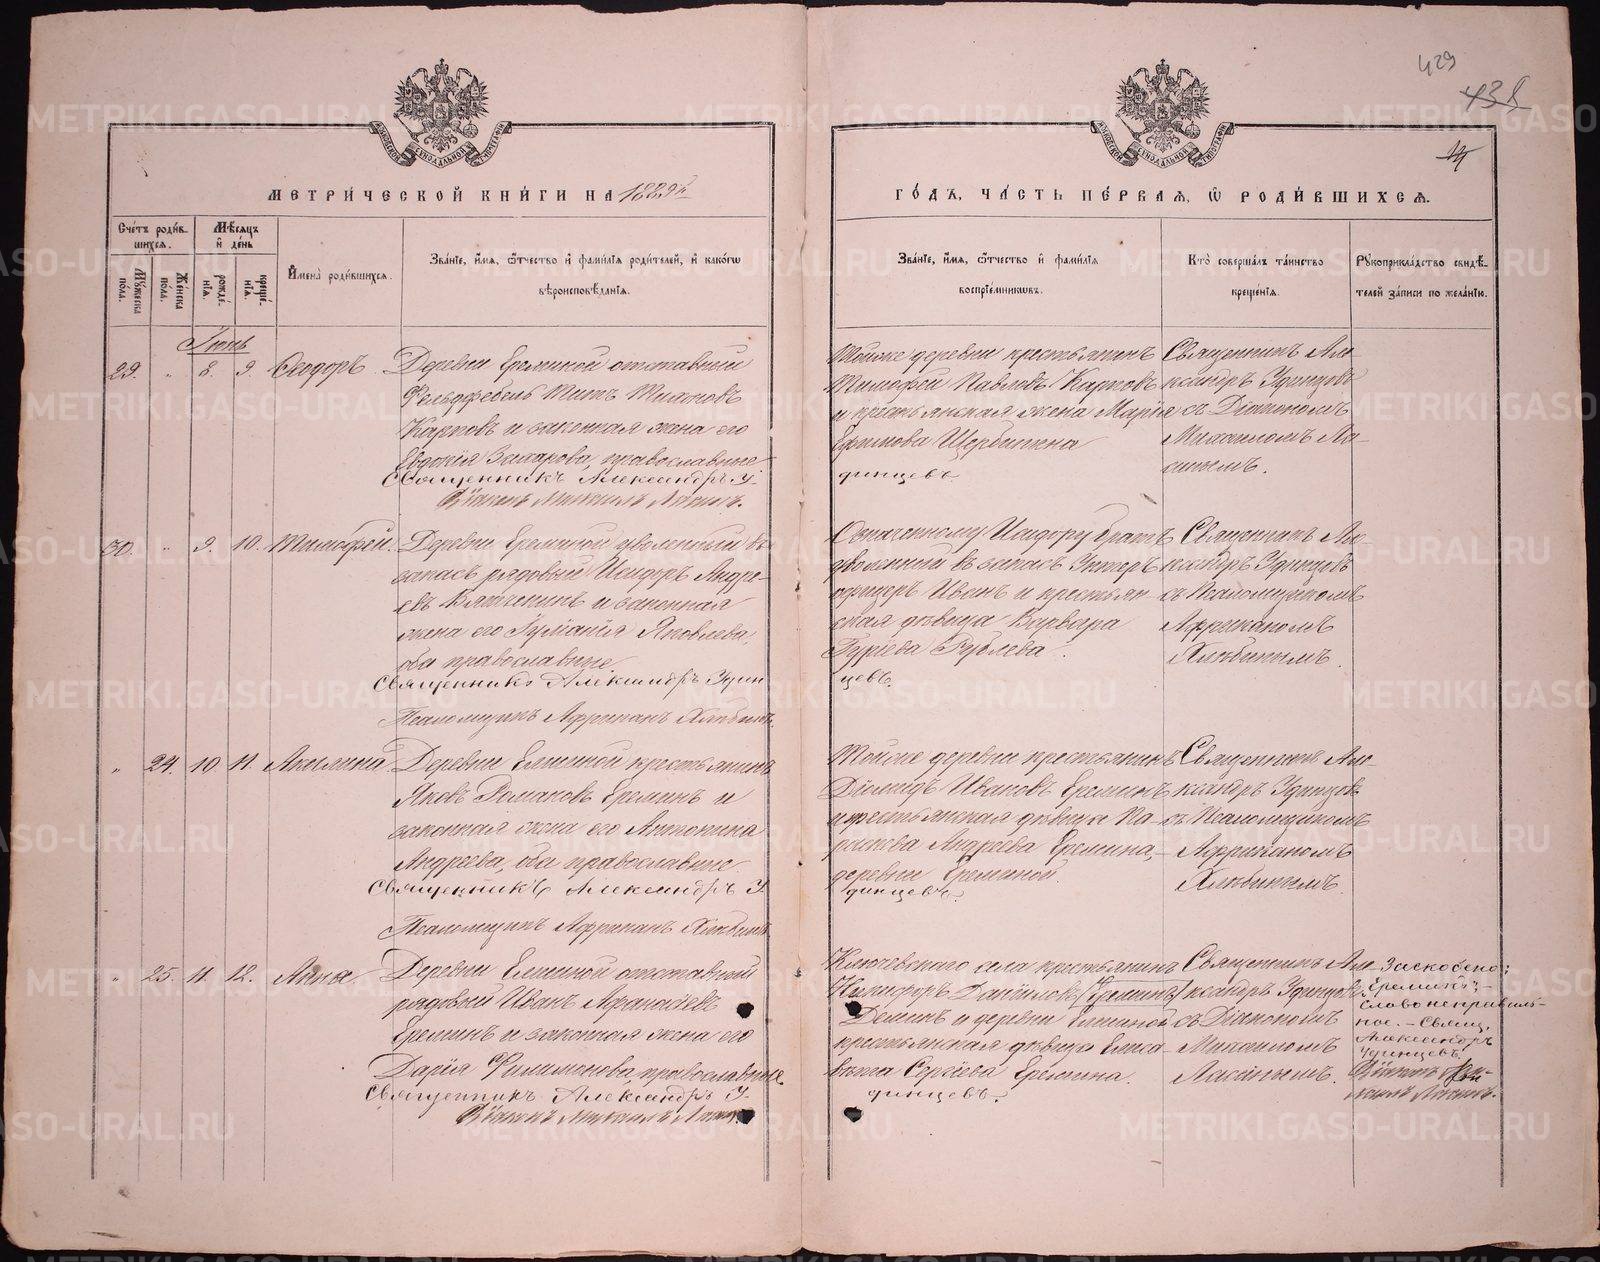 429
438
14
МЕТРИ́ЧЕСКОЙ КНИ́ГИ НА 1889й
ГО́ДЪ, ЧА́СТЬ ПЕ́РВАЯ, Ѡ РОДИ́ВШИХСЯ.
Сче́тъ роди́вшихся.
Мꙋ́жеска по́ла.
Же́нска по́ла.
Мѣ́сяцъ и҆ де́нь
рожде́нїя.
креще́нїя.
И҆мена̀ роди́вшихся.
Зва́нїе, и҆́мя, ѻ҆́тчество и҆ фами́лїя роди́телей, и҆ како́гѡ
вѣроисповѣ́данїя.
Зва́нїе, и҆́мя, ѻ҆́тчество и҆ фами́лїя
воспрїе́мникѡвъ.
Кто̀ соверша́лъ та́инство
креще́нїя.
Рꙋкоприкла́дство свидѣ́-
телей за́писи по жела́нїю.
Іюнь
29. " 8. 9. Ѳеодоръ
Деревни Ереминой отставный
Фельдфебель Титъ Тихоновъ
Карповъ и законная жена его
Евдокія Захарова, православные
Священникъ Александръ У-
Діаконъ Михаилъ Ласинъ.
Тойже деревни крестьянинъ
Тимофей Павловъ Карповъ
и крестьянская жена Марія
Ефимова Щербинина
динцевъ
Священникъ Але-
ксандръ Удинцовъ
съ Діакономъ
Михаиломъ Ла-
синымъ.
30. " 9. 10. Тимофей.
Деревни Ереминой уволенный въ
запасъ рядовый Исидоръ Андре-
евъ и законная
жена его Яковлева,
оба православные
Священникъ Александръ Удин
Псаломщикъ Африканъ Хлябинъ.
Означенному Исидору братъ
уволенный въ запасъ Унтеръ
офицеръ Иванъ и крестьян-
ская дѣвица Варвара
Гуріева Рублева.
цевъ.
Священникъ Але-
ксандръ Удинцовъ
съ Псаломщикомъ
Африканомъ
Хлябинымъ.
" 24. 10. 11. Акилина
Деревни Елиной крестьянинъ
Яковъ Романовъ Ереминъ и
законная жена его Антонина
Андреева, оба православные
Священникъ Александръ У
Псаломщикъ Африканъ Хлябинъ
Тойже деревни крестьянинъ
Діомидъ Ивановъ Ереминъ
и крестьянская дѣвица Па-
раскева Андреева Еремина,
деревни Ереминой.
динцевъ.
Священникъ Але-
ксандръ Удинцовъ
съ Псаломщикомъ
Африканомъ
Хлябинымъ.
" 25. 11. 12. Анна
Деревни Елиной отставный
рядовый Иванъ Афанасіевъ
Ереминъ и законная жена его
Дарія Филимонова, православные
Священникъ Александръ У-
Діаконъ Михаилъ Ласинъ
Ключевскаго села крестьянинъ
Никифоръ Даніиловъ (Ереминъ)
Деминъ и деревни Елиной
крестьянская дѣвица Елиса-
вета Сергіева Еремина.
динцевъ.
Священникъ Але-
ксандръ Удинцовъ
съ Діакономъ
Михаиломъ
Ласинымъ.
Заскобено;
"Ереминъ" -
слово неправиль-
ное. - Свящ.
Александръ
Удинцевъ.
Діаконъ Ми-
хаилъ Ласинъ.
METRIKI.GASO-URAL.RU